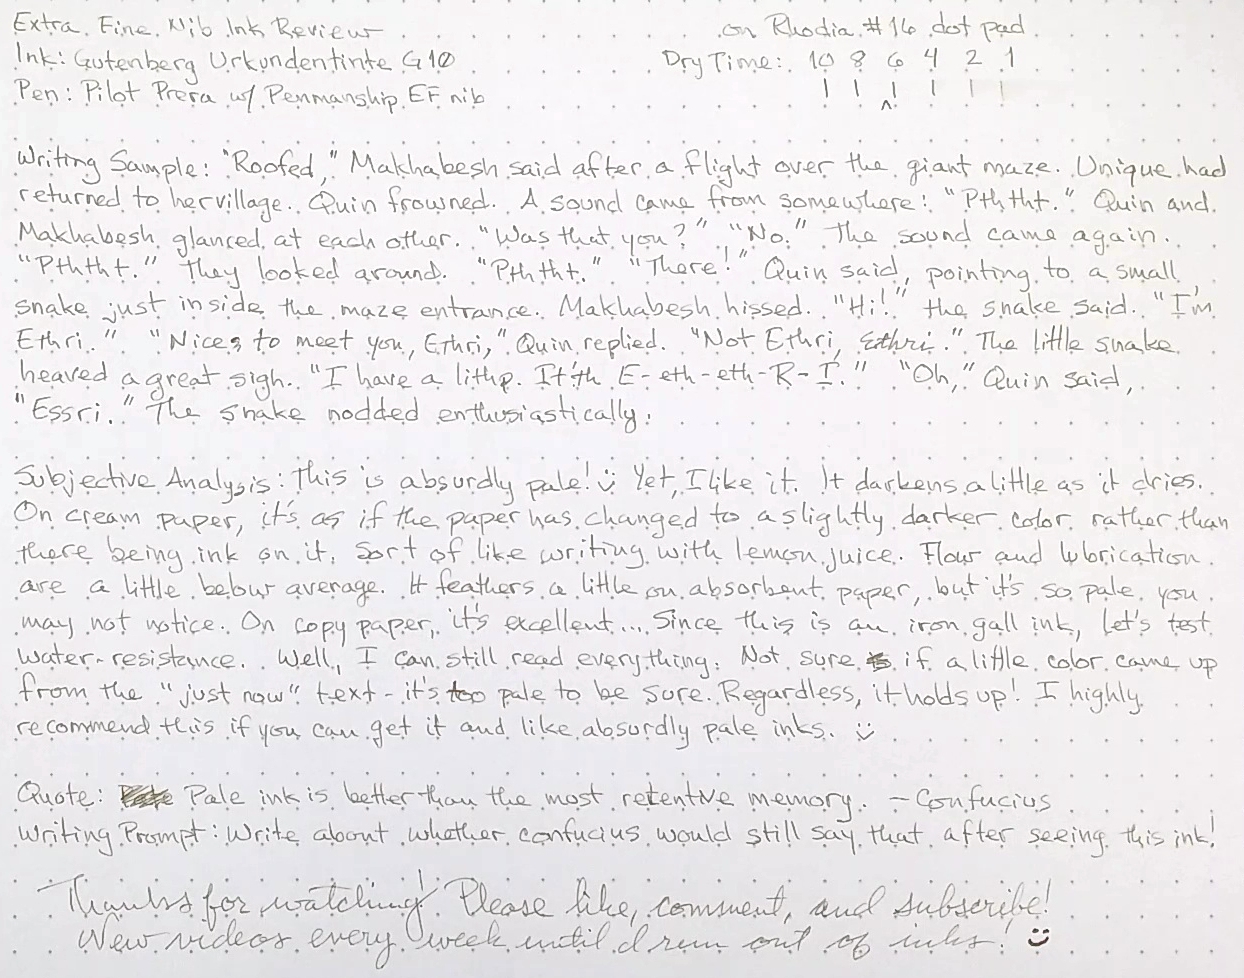 Extra Fine Nib Ink Review on Rhodia #16 dot pad
Ink: Gutenberg Urkundentinte G10 Dry Time: 10 8 6 4 2 1
Pen: Pilot Prera w/ Penmanship EF nib
Writing Sample: "Roofed," Makhabesh said after a flight over the giant maze. Unique had
returned to her village. Quin frowned. A sound came from somewhere: "Pththt." Quin and
Makhabesh glanced at each other. "Was that you?" "No." The sound came again.
"Pththt." They looked around. "Pththt." "There!" Quin said, pointing to a small
snake just inside the maze entrance. Makhabesh hissed. "Hi!" the snake said. "I'm
Ethri." "Nice to meet you, Ethri," Quin replied. "Not Ethri, Ethri." The little snake
heaved a great sigh. "I have a lithp. It'th E-eth-eth-R-I." "Oh," Quin said,
"Essri." The snake nodded enthusiastically.
Subjective Analysis: This is absurdly pale! Yet, I like it. It darkens a little as it dries.
On cream paper, it's as if the paper has changed to a slightly darker color rather than
there being ink on it. Sort of like writing with lemon juice. Flow and lubrication
are a little below average. It feathers a little on absorbent paper, but it's so pale you
may not notice. On copy paper, it's excellent... Since this is an iron gall ink, let's test
water-resistance. Well, I can still read everything. Not sure if a little color came up
from the "just now" text - it's too pale to be sure. Regardless, it holds up! I highly
recommend this if you can get it and like absurdly pale inks. :)
Quote: Pale ink is better than the most retentive memory. - Confucius
Writing Prompt: Write about whether confucius would still say that after seeing this ink!
Thanks for watching! Please like, comment, and subscribe!
New videos every week until I run out of inks! :)